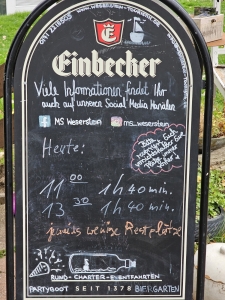 Einbecker
Viele Informationen findet Ihr
auch auf unseren Social Media Kanälen
MS Weserstein
ms_weserstein
Heute:
11 00 1h 40 min.
13 30 1h 40 min.
jeweils wenige Restplätze
RUND-CHARTER-EVENTFAHRTEN
PARTYBOOT SEIT 1378 BIERGARTEN